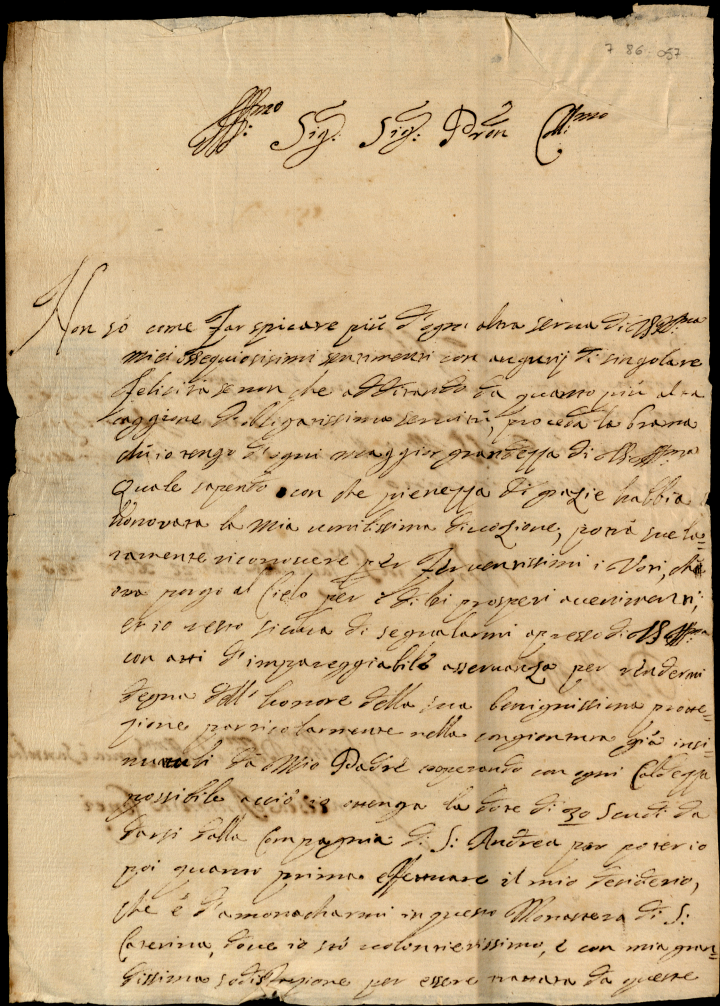 7 86 057
Ill:mo Sig: Sig: Pron Coll:mo
Non só come far spiccare più d'ogni altra serua di VS Ill:ma
miei ossequiosissimi sentimenti con augurij di singolare
felicità se non che additando da quanto più alta
caggione d'obligatissima seruitù, proceda la brama
ch'io tengo d'ogni maggior grandezza di VS Ill:ma
Quale sapendo con che pienezza di grazie habbia
honorata la mia umilissima diuozione, potrà sue la-
ramente riconoscere per feruentissimi i Voti, che
ora porgo al Cielo per i di lei prosperi auuenimenti;
et io resto sicura di segnalarmi apresso di VS Ill:ma
con atti d'impareggiabile osseruanza per rendermi
degna dell'honore della sua benignissima prote-
zione particolarmente nella congiontura già insi-
nuatali da Mio Padre cooperando con ogni Caldezza
possibile acciò io ottenga la dote di 30 Scudi da
darsi dalla Compagnia di S: Andrea per poter io
poi quanto prima effettuare il mio desiderio,
che è d'amonacharmi in questo Monastero di S:
Caterina, doue io stó uolontierissimo, e con mia gran-
dissima sodisfazione per essere trattata da queste